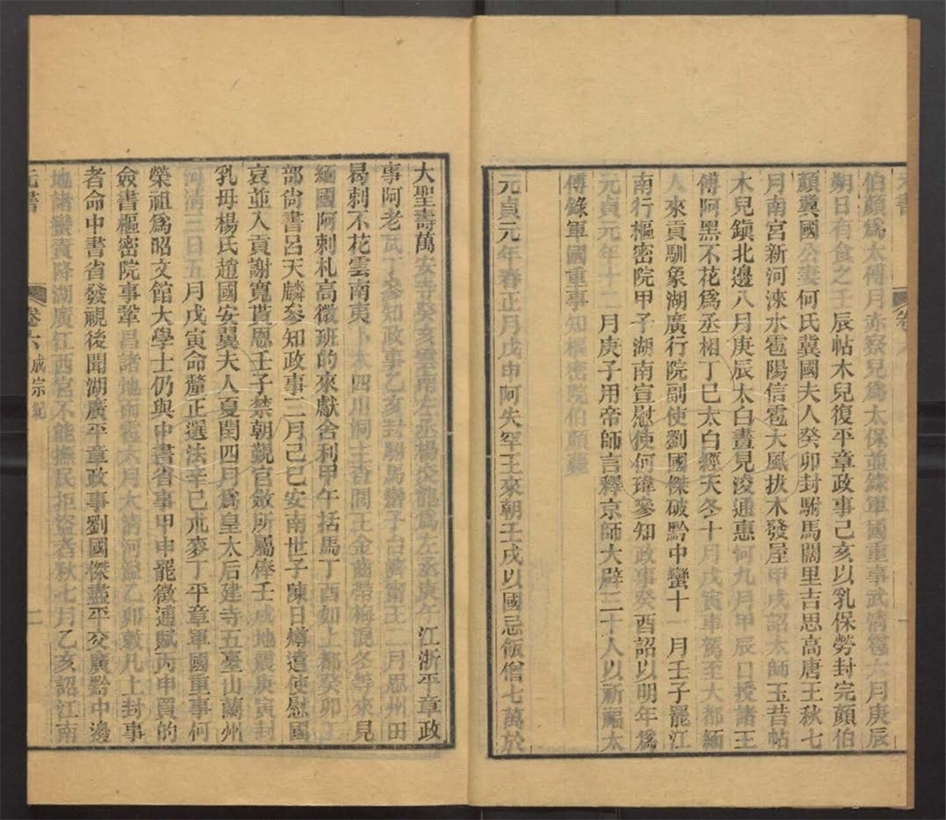 伯顏爲太傅月赤察兒爲太保並錄軍國重事武清雹六月庚辰
朔日有食之壬辰帖木兒復平章政事己亥以乳保勞封完顏伯
顏冀國公妻何氏冀國夫人癸卯封駙馬闊里吉思高唐王秋七
月南宮新河淶水雹陽信雹大風拔木發屋甲戌詔太師玉昔帖
木兒鎭北邊八月庚辰太白晝見浚通惠河九月甲辰授諸王
傅阿黑不花爲丞相丁巳太白經天冬十月戊寅車駕至大都緬
人來貢馴象湖廣行院副使劉國傑破黔中蠻十一月壬子罷江
南行樞密院甲子湖南宣慰使何瑋參知政事癸酉詔以明年爲
元貞元年十二月庚子用帝師言釋京師大辟三十人以祈福太
傅錄軍國重事知樞密院伯顏薨
元貞元年春正月戊申阿失罕王來朝壬戌以國忌飯僧七萬於
大聖壽萬安寺癸亥雲南左丞楊炎龍爲左丞庚午江浙平章政
事阿老參知政事乙亥封駙馬蠻子台濟甯王二月思州田
曷剌不花雲南夷卜木四川洞主查閭王金齒帶梅混冬等來見
緬國阿剌札高微班的來獻舍利甲午括馬丁酉如上都癸卯工
部尙書呂天麟參知政事三月己巳安南世子陳日燇遣使慰國
哀並入貢謝寬貰恩壬子禁朝觀官斂所屬俸壬戌地震庚寅封
乳母楊氏趙國安翼夫人夏閏四月爲皇太后建寺五臺山蘭州
河清三日五月戊寅命釐正選法辛巳禿麥丁平章軍國重事何
榮祖爲昭文館大學士仍與中書省事甲申罷徵逋賦丙申買的
僉書樞密院事鞏昌諸地雨雹六月大清河溢乙卯敕凡上封事
者命中書省發視後聞湖廣平章政事劉國傑盡平交廣黔中邊
地諸蠻賣降湖廣江西官不能撫民拒盜者秋七月乙亥詔江南
元書
卷六
成宗紀
二